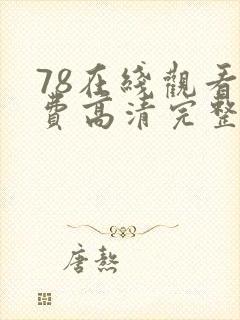 78在綫觀看
費高清完整
唐熬